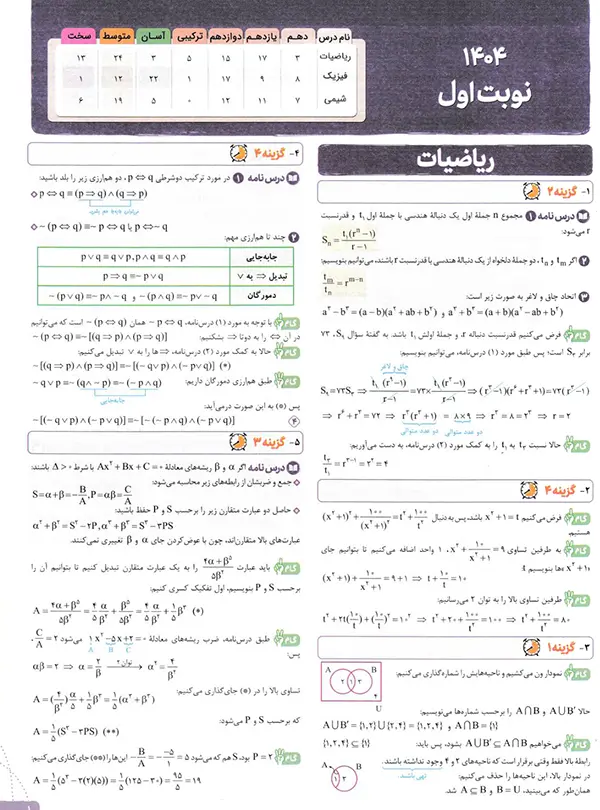 ۱۴۰۴
نوبت اول
نام درس دهم یازدهم دوازدهم ترکیبی آسان متوسط سخت
ریاضیات ۳ ۱۷ ۱۵ ۵ ۳ ۲۴ ۱۳
فیزیک ۸ ۹ ۱۷ ۱ ۲۲ ۱۲ ۱
شیمی ۷ ۱۱ ۱۲ ۰ ۵ ۱۹ ۶
ریاضیات
۱- گزینه ۲
درس نامه ۱ مجموع n جملهٔ اول یک دنبالهٔ هندسی با جملهٔ اول t₁ و قدرنسبت
r می‌شود:
Sₙ = t₁(rⁿ −۱) / r −۱
۲ اگر tₘ و tₙ، دو جملهٔ دلخواه از یک دنبالهٔ هندسی با قدرنسبت r باشند، می‌توانیم بنویسیم:
tₘ / tₙ = rᵐ⁻ⁿ
۳ اتحاد چاق و لاغر به صورت زیر است:
a³ − b³ = (a − b)(a² + ab + b²) و a³ + b³ = (a + b)(a² − ab + b²)
گام ۱ فرض می‌کنیم قدرنسبت دنباله r و جملهٔ اولش t₁ باشد. به گفتهٔ سؤال S₉، ۷۳
برابر S₃ است؛ پس طبق مورد (۱) درس‌نامه، می‌توانیم بنویسیم:
چاق و لاغر
S₉ = ۷۳S₃ ⇒ t₁(r⁹ −۱) / r −۱ = ۷۳ × t₁(r³ −۱) / r −۱ ⇒ (r³ −۱)(r⁶ + r³ +۱) = ۷۳(r³ −۱)
⇒ r⁶ + r³ = ۷۲ ⇒ r³(r³ +۱) = ۸×۹ ⇒ r³ = ۸ = ۲³ ⇒ r = ۲
دو عدد متوالی دو عدد متوالی
گام ۲ حالا نسبت t₃ به t₁ را به کمک مورد (۲) درس‌نامه، به دست می‌آوریم:
t₃ / t₁ = r³⁻¹ = ۲² = ۴
۲- گزینه ۴
گام ۱ فرض می‌کنیم x² +۱ = t باشد، پس به دنبال (x² +۱)² + ۱۰۰ / (x² +۱)² = t² + ۱۰۰ / t²
هستیم.
گام ۲ به طرفین تساوی x² + ۱۰ / x² +۱ = ۹، ۱ واحد اضافه می‌کنیم تا بتوانیم جای
x² +۱ها بنویسیم t:
(x² +۱) + ۱۰ / x² +۱ = ۹ +۱ ⇒ t + ۱۰ / t = ۱۰
گام ۳ طرفین تساوی بالا را به توان ۲ می‌رسانیم:
t² + ۲t(۱۰ / t) + (۱۰ / t)² = ۱۰² ⇒ t² + ۲۰ + ۱۰۰ / t² = ۱۰۰ ⇒ t² + ۱۰۰ / t² = ۸۰
۳- گزینه ۱
گام ۱ نمودار ون می‌کشیم و ناحیه‌هایش را شماره‌گذاری می‌کنیم:
A B ۲ ۱ ۳ ۴ U
حالا A∪B′ و A∩B را برحسب شماره‌ها می‌نویسیم:
A∪B′ = {۱,۲}∪{۲,۴} = {۱,۲,۴} و A∩B = {۱}
گام ۲ می‌خواهیم A∪B′ ⊆ A∩B بشود، پس باید: {۱,۲,۴} ⊆ {۱}
رابطهٔ بالا فقط وقتی برقرار است که ناحیه‌های ۲ و ۴ وجود نداشته باشند.
تهی باشند.
در نمودار بالا، این ناحیه‌ها را حذف می‌کنیم:
همان‌طور که می‌بینید، B = U و A ⊆ B شد.
A B ۱ ۳
۴- گزینه ۴
درس نامه ۱ در مورد ترکیب دوشرطی p ⇔ q، دو هم‌ارزی زیر را بلد باشید:
p ⇔ q ≡ (p ⇒ q) ∧ (q ⇒ p)
∼(p ⇔ q) ≡ ∼p ⇔ q یا p ⇔ ∼q
۲ چند تا هم‌ارزی مهم:
جابه‌جایی p ∨ q ≡ q ∨ p, p ∧ q ≡ q ∧ p
تبدیل ⇒ به ∨ p ⇒ q ≡ ∼p ∨ q
دمورگان ∼(p ∨ q) ≡ ∼p ∧ ∼q و ∼(p ∧ q) ≡ ∼p ∨ ∼q
گام ۱ با توجه به مورد (۱) درس‌نامه، ∼p ⇔ q همان ∼(p ⇔ q) است که می‌توانیم
در آن ⇔ را به دوتا ⇒ بشکنیم: ∼(p ⇔ q) ≡ ∼[(q ⇒ p) ∧ (p ⇒ q)]
گام ۲ حالا به کمک مورد (۲) درس‌نامه، ⇒ها را به ∨ تبدیل می‌کنیم:
∼[(q ⇒ p) ∧ (p ⇒ q)] ≡ ∼[(∼q ∨ p) ∧ (∼p ∨ q)] (*)
گام ۳ طبق هم‌ارزی دمورگان داریم: ∼q ∨ p ≡ ∼(q ∧ ∼p) ≡ ∼(∼p ∧ q)
جابه‌جایی
پس (*) به این صورت درمی‌آید:
∼[(∼q ∨ p) ∧ (∼p ∨ q)] ≡ ∼[∼(∼p ∧ q) ∧ (∼p ∨ q)] ۴
۵- گزینه ۳
درس نامه اگر α و β ریشه‌های معادلهٔ Ax² + Bx + C = ۰ با شرط Δ > ۰ باشند:
جمع و ضربشان از رابطه‌های زیر محاسبه می‌شود:
S = α + β = − B / A, P = αβ = C / A
حاصل دو عبارت متقارن زیر را برحسب S و P حفظ باشید:
α² + β² = S² − ۲P, α³ + β³ = S³ − ۳PS
عبارت‌های بالا متقارن‌اند، چون با عوض‌کردن جای α و β تغییری نمی‌کنند.
گام ۱ باید عبارت ۴α + β⁵ / ۵β² را به یک عبارت متقارن تبدیل کنیم تا بتوانیم آن را
برحسب S و P بنویسیم، اول تفکیک کسری کنیم:
A = ۴α + β⁵ / ۵β² = ۴ / ۵ α / β² + β⁵ / ۵β² = ۴ / ۵ α / β² + ۱ / ۵ β³ (*)
گام ۲ طبق درس‌نامه، ضرب ریشه‌های معادلهٔ ۱x² − ۵x + ۲ = ۰ می‌شود C / A = ۲،
A B C
پس:
αβ = ۲ ⇒ α = ۲ / β ⇒ توان ۲ α² = ۴ / β²
تساوی بالا را در (*) جای‌گذاری می‌کنیم:
A = (۴ / β²) α / ۵ + ۱ / ۵ β³ = ۱ / ۵ (α³ + β³)
که برحسب S و P می‌شود:
A = ۱ / ۵ (S³ − ۳PS) (**)
گام ۳ P = ۲ بود، S هم که می‌شود − B / A = − −۵ / ۱ = ۵ این‌ها را (**) جای‌گذاری می‌کنیم:
A = ۱ / ۵ (۵³ − ۳(۲)(۵)) = ۱ / ۵ (۱۲۵ − ۳۰) = ۹۵ / ۵ = ۱۹
۱